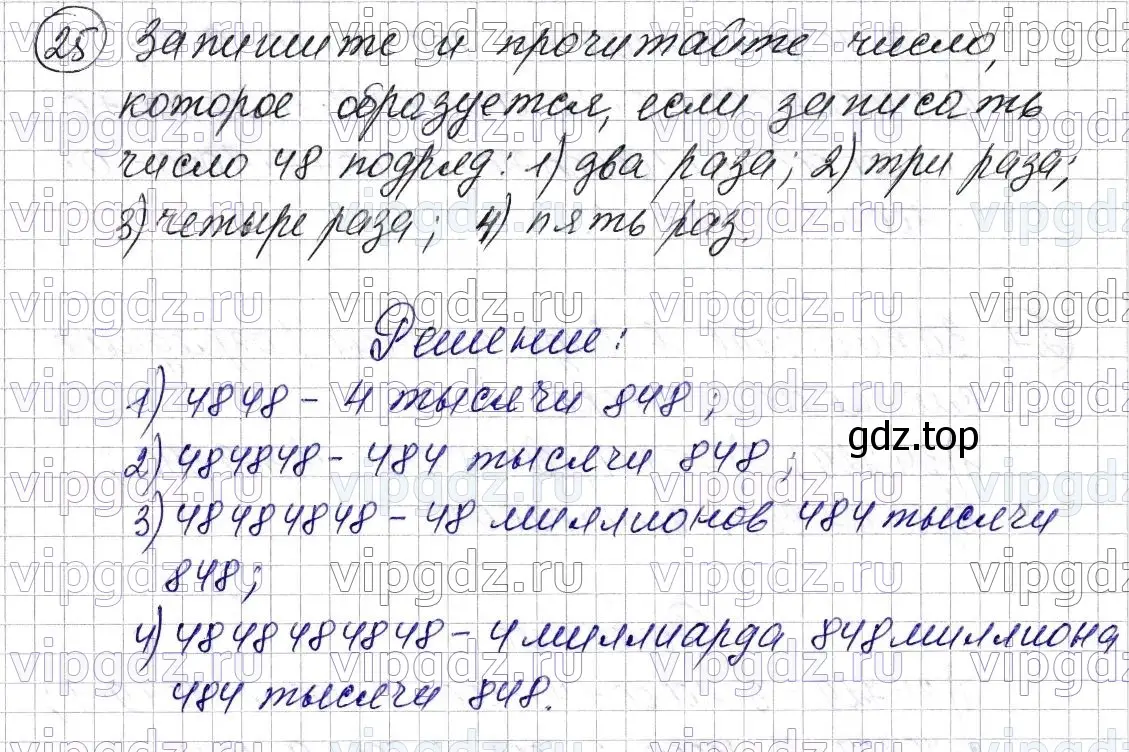 25 Запишите и прочитайте число,
которое образуется, если записать
число 48 подряд: 1) два раза; 2) три раза;
3) четыре раза; 4) пять раз.
Решение:
1) 4848 - 4 тысячи 848;
2) 484848 - 484 тысячи 848;
gdz.top
3) 48484848 - 48 миллионов 484 тысячи
848;
4) 4848484848 - 4 миллиарда 848 миллиона
484 тысячи 848.
vipgdz.ru